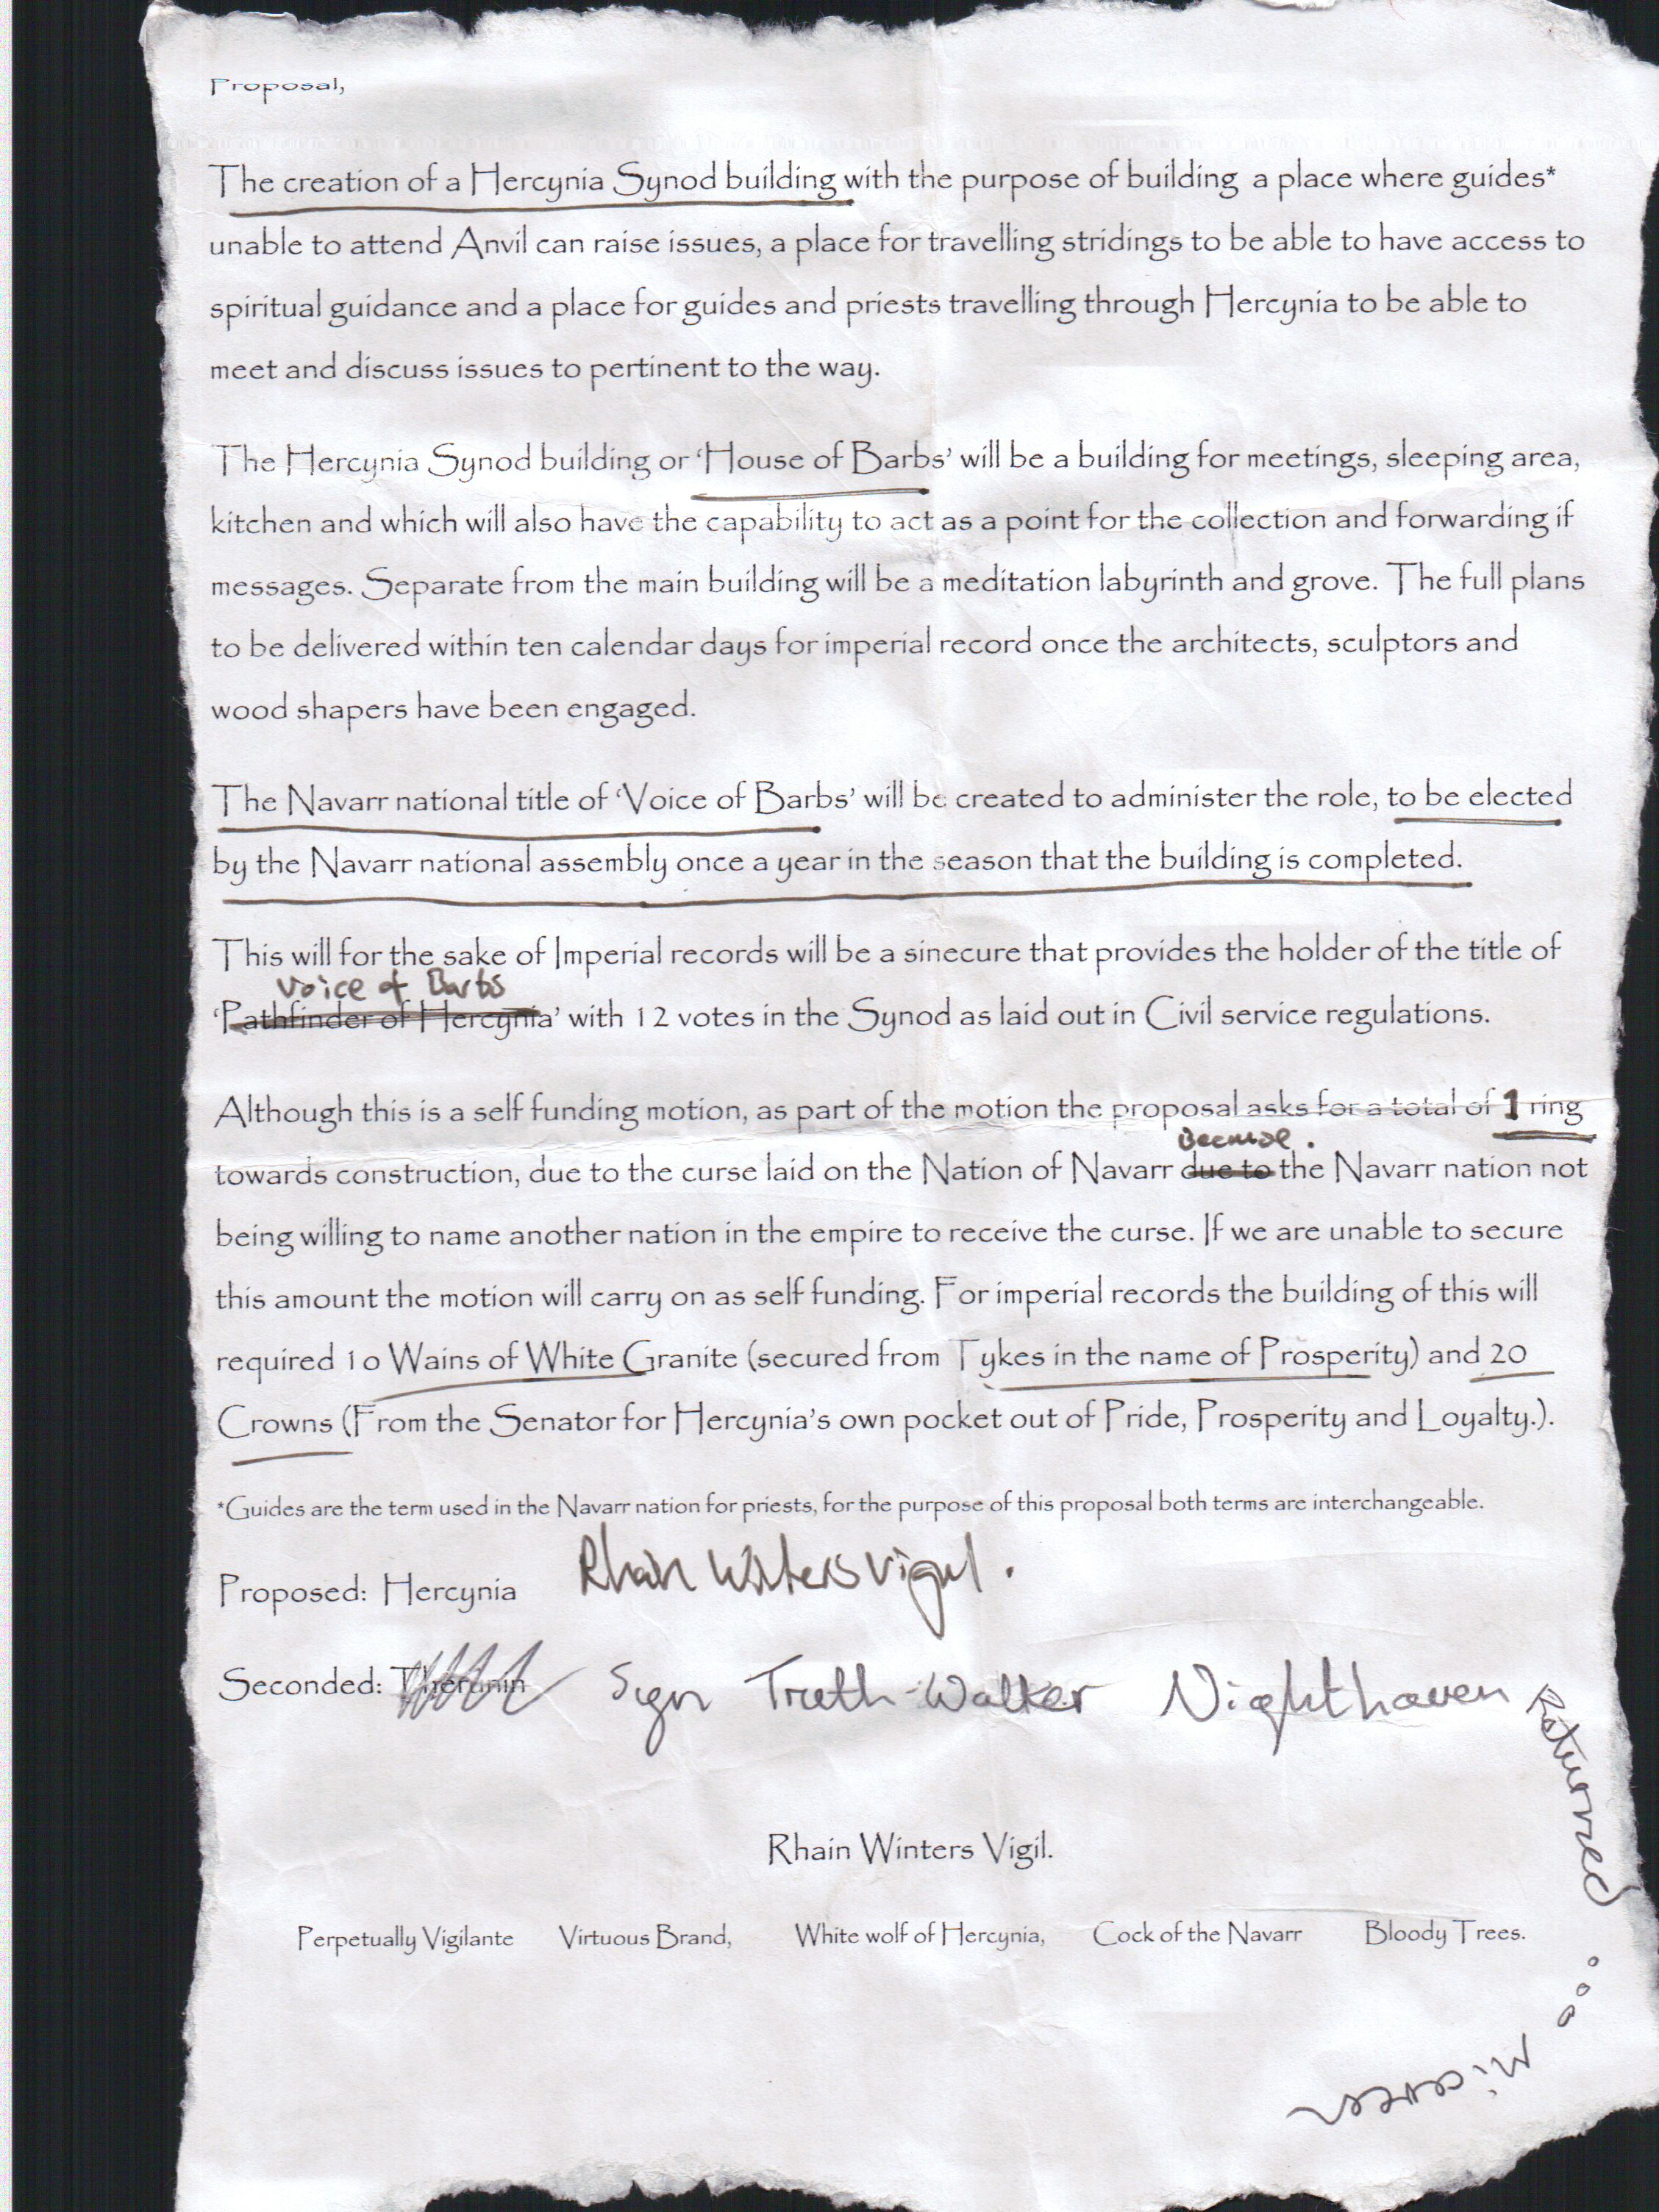 Proposal,
The creation of a Hercynia Synod building with the purpose of building a place where guides*
unable to attend Anvil can raise issues, a place for travelling stridings to be able to have access to
spiritual guidance and a place for guides and priests travelling through Hercynia to be able to
meet and discuss issues to pertinent to the way.
The Hercynia Synod building or 'House of Barbs' will be a building for meetings, sleeping area,
kitchen and which will also have the capability to act as a point for the collection and forwarding if
messages. Separate from the main building will be a meditation labyrinth and grove. The full plans
to be delivered within ten calendar days for imperial record once the architects, sculptors and
wood shapers have been engaged.
The Navarr national title of 'Voice of Barbs' will be created to administer the role, to be elected
by the Navarr national assembly once a year in the season that the building is completed.
This will for the sake of Imperial records will be a sinecure that provides the holder of the title of
Voice of Barbs
'Pathfinder of Hercynia' with 12 votes in the Synod as laid out in Civil service regulations.
Although this is a self funding motion, as part of the motion the proposal asks for a total of 1 ring
Because.
towards construction, due to the curse laid on the Nation of Navarr due to the Navarr nation not
being willing to name another nation in the empire to receive the curse. If we are unable to secure
this amount the motion will carry on as self funding. For imperial records the building of this will
required 10 Wains of White Granite (secured from Tykes in the name of Prosperity) and 20
Crowns (From the Senator for Hercynia's own pocket out of Pride, Prosperity and Loyalty.).
*Guides are the term used in the Navarr nation for priests, for the purpose of this proposal both terms are interchangeable.
Proposed: Hercynia Rhain Winters Vigil.
Seconded: Therunin Sgn Truth-Walker Nighthaven
Returned
Rhain Winters Vigil.
Perpetually Vigilante Virtuous Brand, White wolf of Hercynia, Cock of the Navarr Bloody Trees.